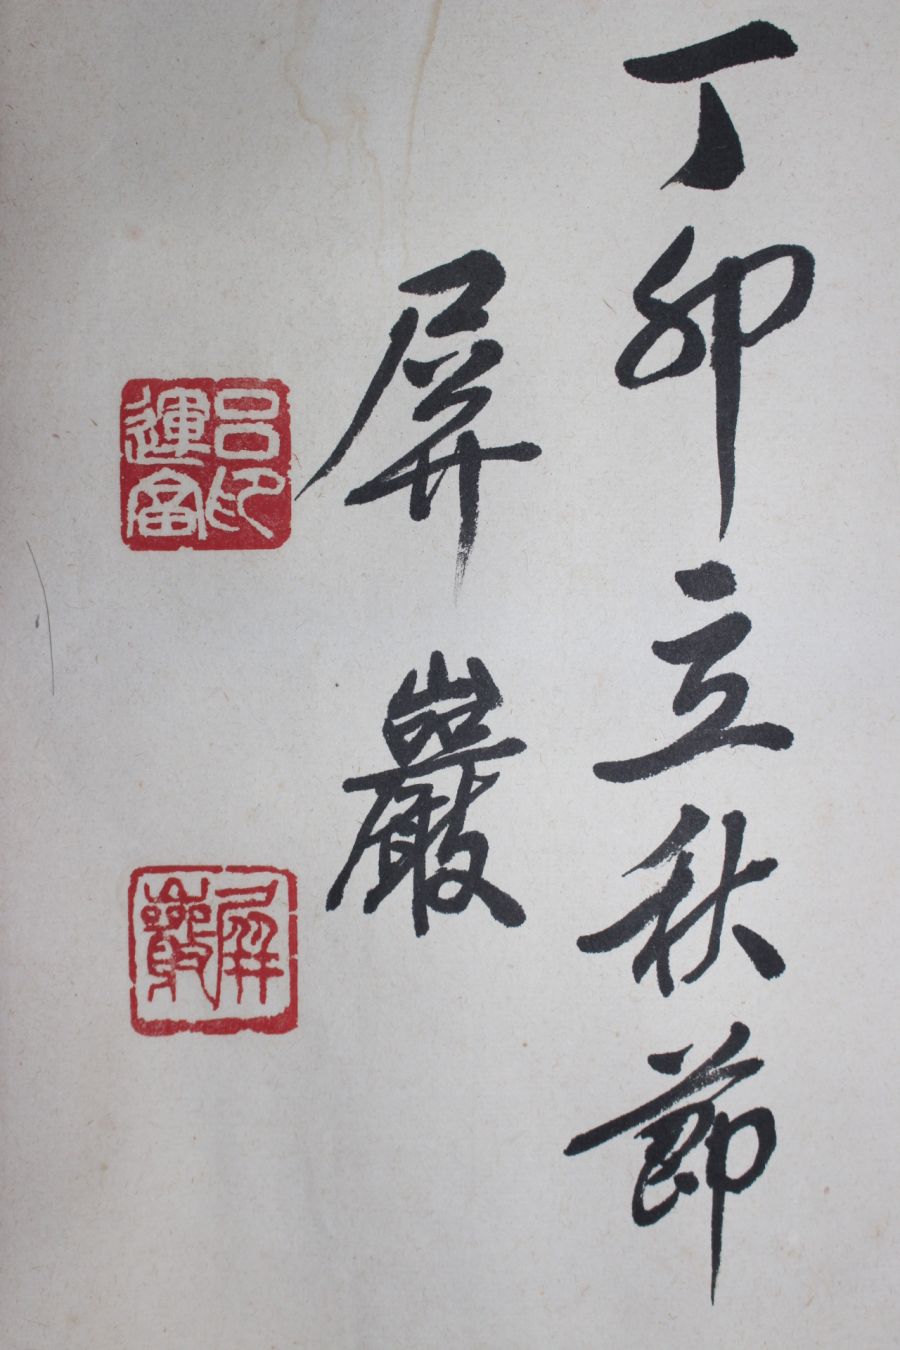 丁卯立秋節
屏巖
呂印
運富
屏
巖